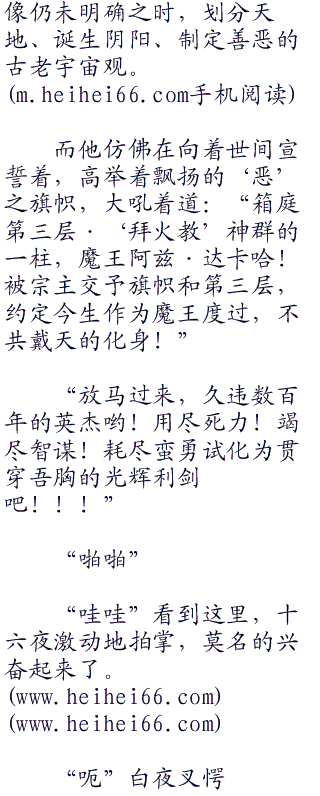 像仍未明确之时，划分天
地、诞生阴阳、制定善恶的
古老宇宙观。
(m.heihei66.com手机阅读)
而他仿佛在向着世间宣
誓着，高举着飘扬的‘恶’
之旗帜，大吼着道：“箱庭
第三层·‘拜火教’神群的
一柱，魔王阿兹·达卡哈！
被宗主交予旗帜和第三层，
约定今生作为魔王度过，不
共戴天的化身！”
“放马过来，久违数百
年的英杰哟！用尽死力！竭
尽智谋！耗尽蛮勇试化为贯
穿吾胸的光辉利剑
吧！！！”
“啪啪”
“哇哇”看到这里，十
六夜激动地拍掌，莫名的兴
奋起来了。
(www.heihei66.com)
(www.heihei66.com)
“呃”白夜叉愕